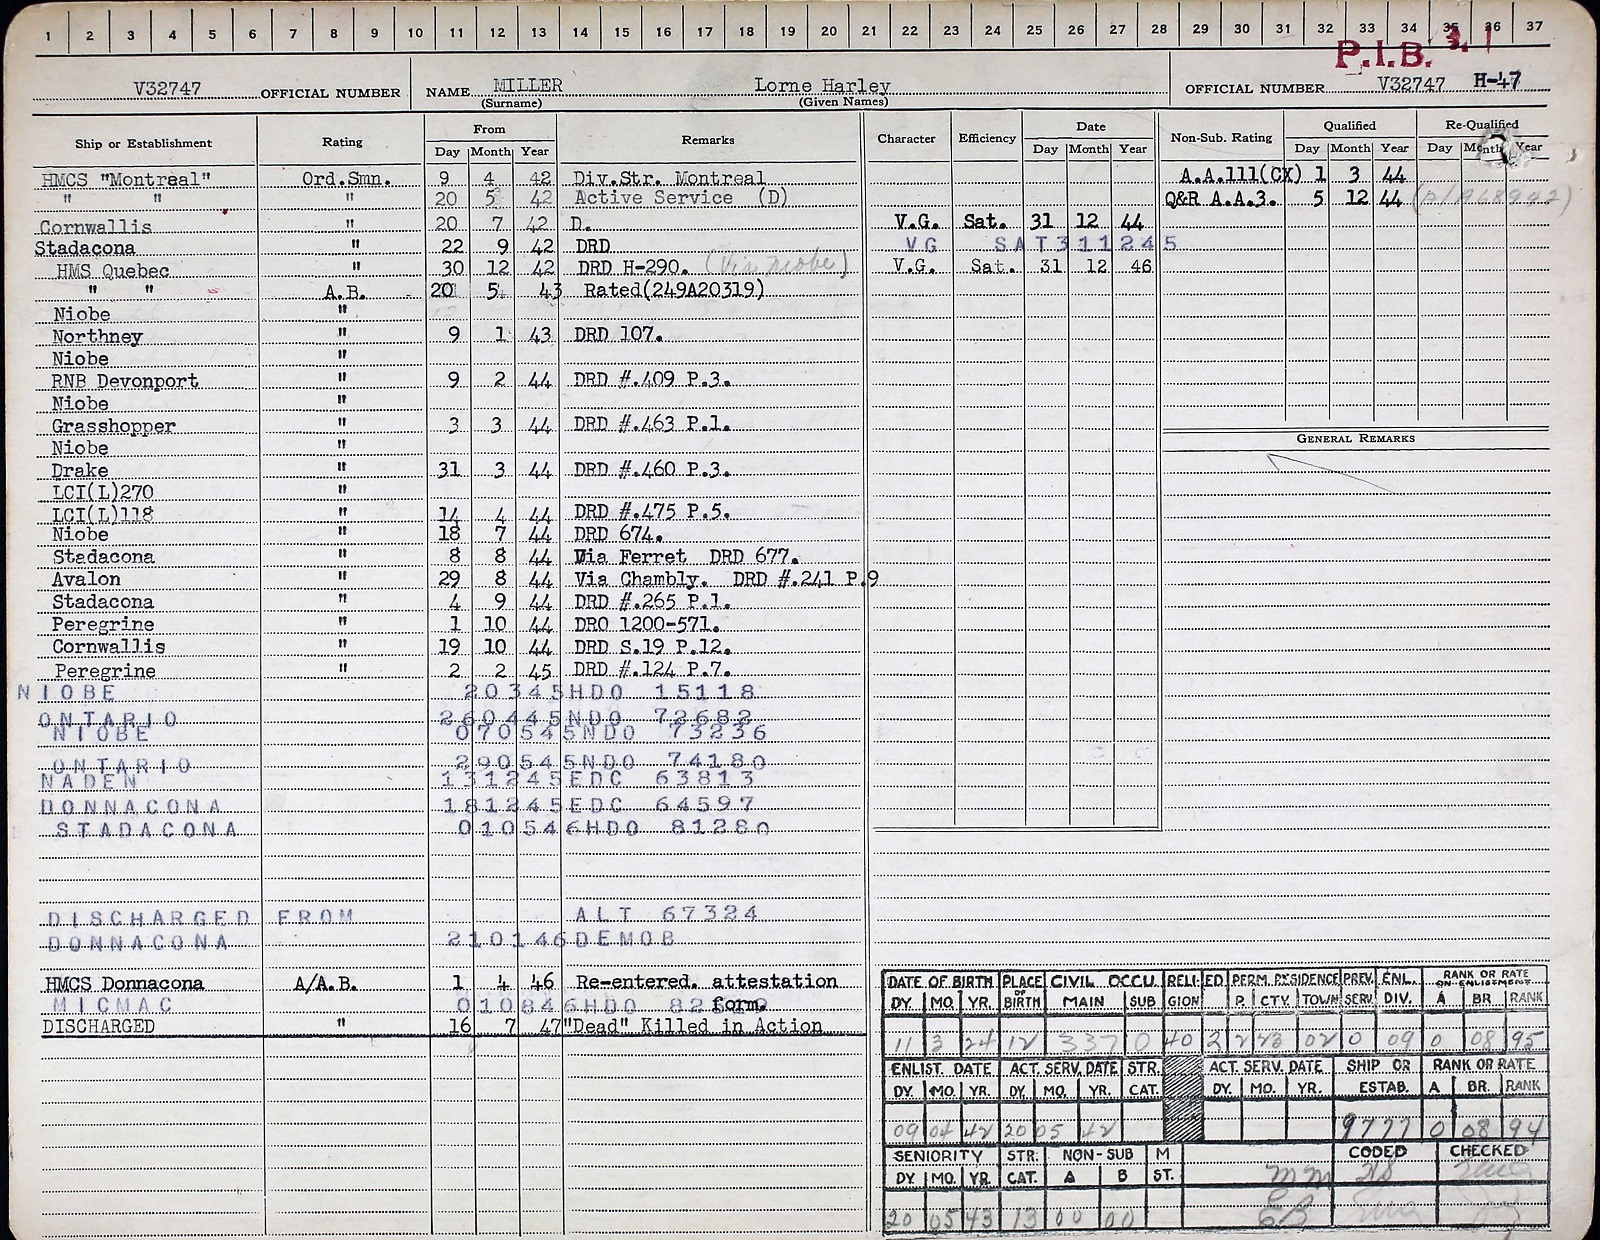 1 2 3 4 5 6 7 8 9 10 11 12 13 14 15 16 17 18 19 20 21 22 23 24 25 26 27 28 29 30 31 32 33 34 35 36 37
P.I.B.
V32747 OFFICIAL NUMBER NAME MILLER Lorne Harley OFFICIAL NUMBER V32747 H-47
(Surname) (Given Names)
Ship or Establishment Rating From Remarks Character Efficiency Date Non-Sub. Rating Qualified Re-Qualified
Day Month Year Day Month Year Day Month Year Day Month Year
HMCS "Montreal" Ord.Smn. 9 4 42 Div.Str. Montreal A.A.111(CX) 1 3 44
" " " 20 5 42 Active Service (D) Q&R A.A.3. 5 12 44
Cornwallis " 20 7 42 D. V.G. Sat. 31 12 44
Stadacona " 22 9 42 DRD VG SAT 311245
HMS Quebec " 30 12 42 DRD H-290. (Via Niobe) V.G. Sat. 31 12 46
" " A.B. 20 5 43 Rated(249A20319)
Niobe "
Northney " 9 1 43 DRD 107.
Niobe "
RNB Devonport " 9 2 44 DRD #.409 P.3.
Niobe "
Grasshopper " 3 3 44 DRD #.463 P.1.
GENERAL REMARKS
Niobe "
Drake " 31 3 44 DRD #.460 P.3.
LCI(L)270 "
LCI(L)118 " 14 4 44 DRD #.475 P.5.
Niobe " 18 7 44 DRD 674.
Stadacona " 8 8 44 Via Ferret DRD 677.
Avalon " 29 8 44 Via Chambly. DRD #.241 P.9
Stadacona " 4 9 44 DRD #.265 P.1.
Peregrine " 1 10 44 DRO 1200-571.
Cornwallis " 19 10 44 DRD S.19 P.12.
Peregrine " 2 2 45 DRD #.124 P.7.
NIOBE 20345 HDO 15118
ONTARIO 260445 NDO 72682
NIOBE 070545 NDO 73236
ONTARIO 290545 NDO 74180
NADEN 131245 EDC 63813
DONNACONA 181245 EDC 64597
STADACONA 010546 HDO 81280
DISCHARGED FROM ALT 67324
DONNACONA 210146 DEMOB
HMCS Donnacona A/A.B. 1 4 46 Re-entered. attestation form.
MICMAC 010846 HDO
DISCHARGED " 16 7 47 "Dead" Killed in Action
DATE OF BIRTH PLACE OF BIRTH CIVIL OCCU. RELIGION ED PERM. RESIDENCE PREV. SERV. ENL. DIV. RANK OR RATE ON ENLISTMENT
DY. MO. YR. MAIN SUB P. CTY. TOWN A BR RANK
11 3 24 12 337 0 40 2 2 43 02 0 09 0 08 95
ENLIST. DATE ACT. SERV. DATE STR. CAT. ACT. SERV. DATE SHIP OR ESTAB. RANK OR RATE
DY. MO. YR. DY. MO. YR. DY. MO. YR. A BR. RANK
09 04 42 20 05 42 9777 0 08 94
SENIORITY STR. CAT. NON-SUB M ST. CODED CHECKED
DY. MO. YR. A B
20 05 43 13 00 00 EB